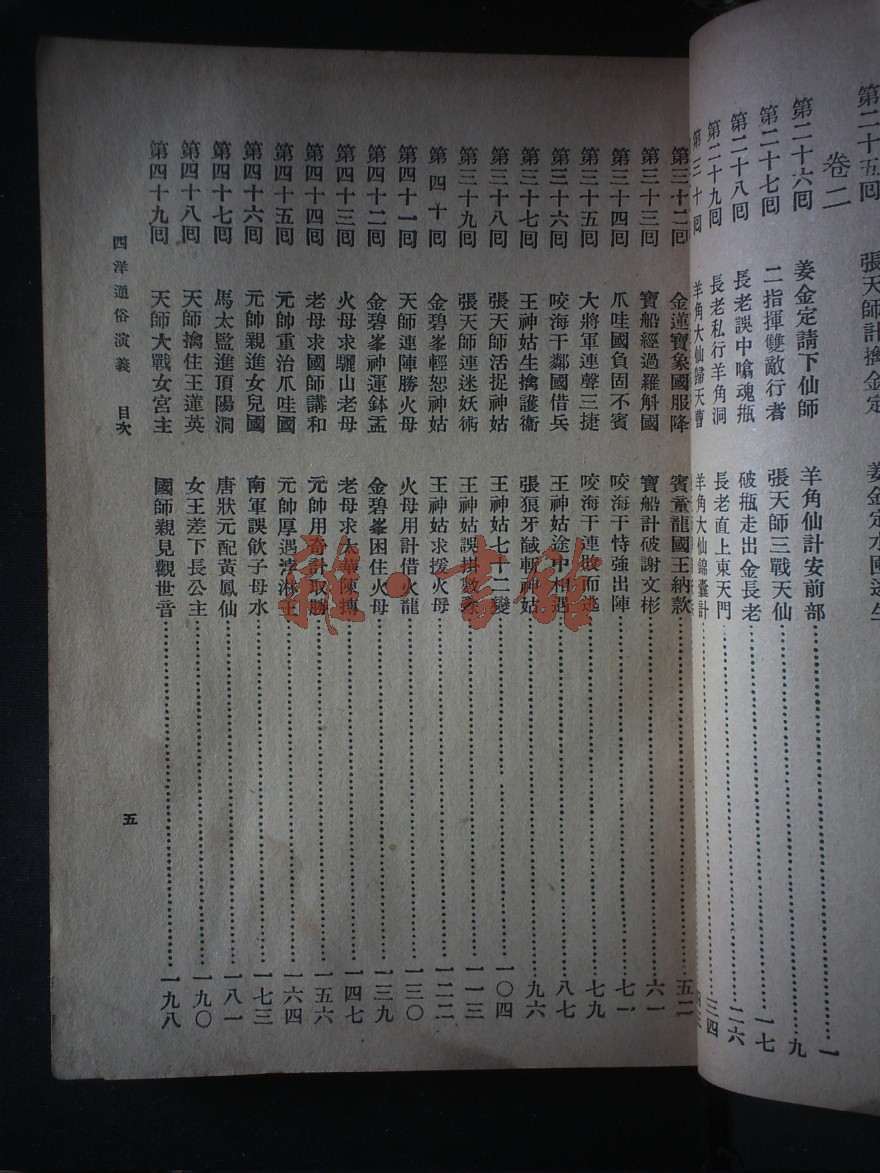 第二十五回 張天師計擒金定
卷二
第二十六回 姜金定請下仙師 羊角仙計安前部 一
第二十七回 二指揮雙敵行者 張天師三戰天仙 九
第二十八回 長老誤中嗆魂瓶 破瓶走出金長老 一七
第二十九回 長老私行羊角洞 長老直上東天門 二六
第三十回 羊角大仙歸天曹 羊角大仙錦囊計 三四
第三十二回 金蓮寶象國服降 賓童龍國王納款 五二
第三十三回 寶船經過羅斛國 寶船計破謝文彬 六一
第三十四回 爪哇國負固不賓 咬海干恃強出陣 七一
第三十五回 大將軍連聲三捷 咬海干連敗而逃 七九
第三十六回 咬海干鄰國借兵 王神姑途中相遇 八七
第三十七回 王神姑生擒護衛 張狼牙馘斬神姑 九六
第三十八回 張天師活捉神姑 王神姑七十二變 一〇四
第三十九回 張天師連迷妖術 王神姑誤掛數珠 一一三
第四十回 金碧峯輕恕神姑 王神姑求援火母 一二二
第四十一回 天師連陣勝火母 火母用計借火龍 一三〇
第四十二回 金碧峯神運鉢盂 金碧峯困住火母 一三九
第四十三回 火母求驪山老母 老母求太華陳摶 一四七
第四十四回 老母求國師講和 元帥用奇計取勝 一五六
第四十五回 元帥重治爪哇國 元帥厚遇浡淋王 一六四
第四十六回 元帥親進女兒國 南軍誤飲子母水 一七三
第四十七回 馬太監進頂陽洞 唐狀元配黃鳳仙 一八一
第四十八回 天師擒住王蓮英 女王差下長公主 一九〇
第四十九回 天師大戰女宮主 國師親見觀世音 一九八
西洋通俗演義 目次
五
雜·書館